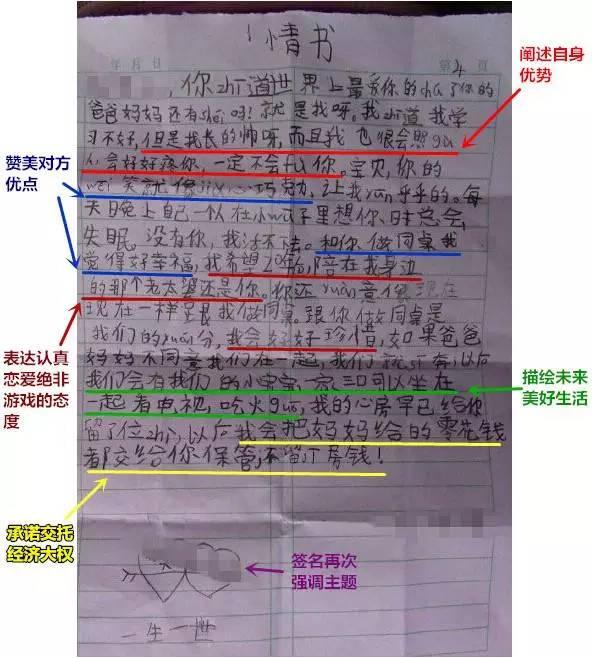 情书
年 月 日 第4页
，你zhi道世界上最爱你的cha了你的
爸爸妈妈还有shei吗！就是我呀。我zhi道我学
习不好，但是我长的帅呀，而且我也很会照gu
会好好疼你，一定不会fu你。宝贝，你的
wei笑就像心巧克力，让我yun乎乎的。每
天晚上自己一人在小wu子里想你，时总会
失眠。没有你，我活不。和你做同桌我
觉得好幸福，我希望，陪在我身边
的那个老太婆还是你。你还yuan意像现在
现在一样跟我做同桌。跟你做同桌是
我们的yuan分，我会好好珍惜，如果爸爸
妈妈不同意我们在一起，我们就奔，以后
我们会有我们的小宝宝，一家三口可以坐在
一起看电视，吃火guo，我的心房早已给你
留了位zhi，以后我会把妈妈给的零花钱
都交给你保管，不留丁房钱！
一生一世
阐述自身
优势
赞美对方
优点
表达认真
恋爱绝非
游戏的态
度
描绘未来
美好生活
承诺交托
经济大权
签名再次
强调主题